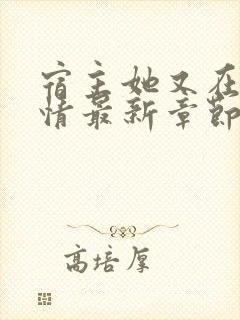 宿主她又在
情最新章節
高培厚